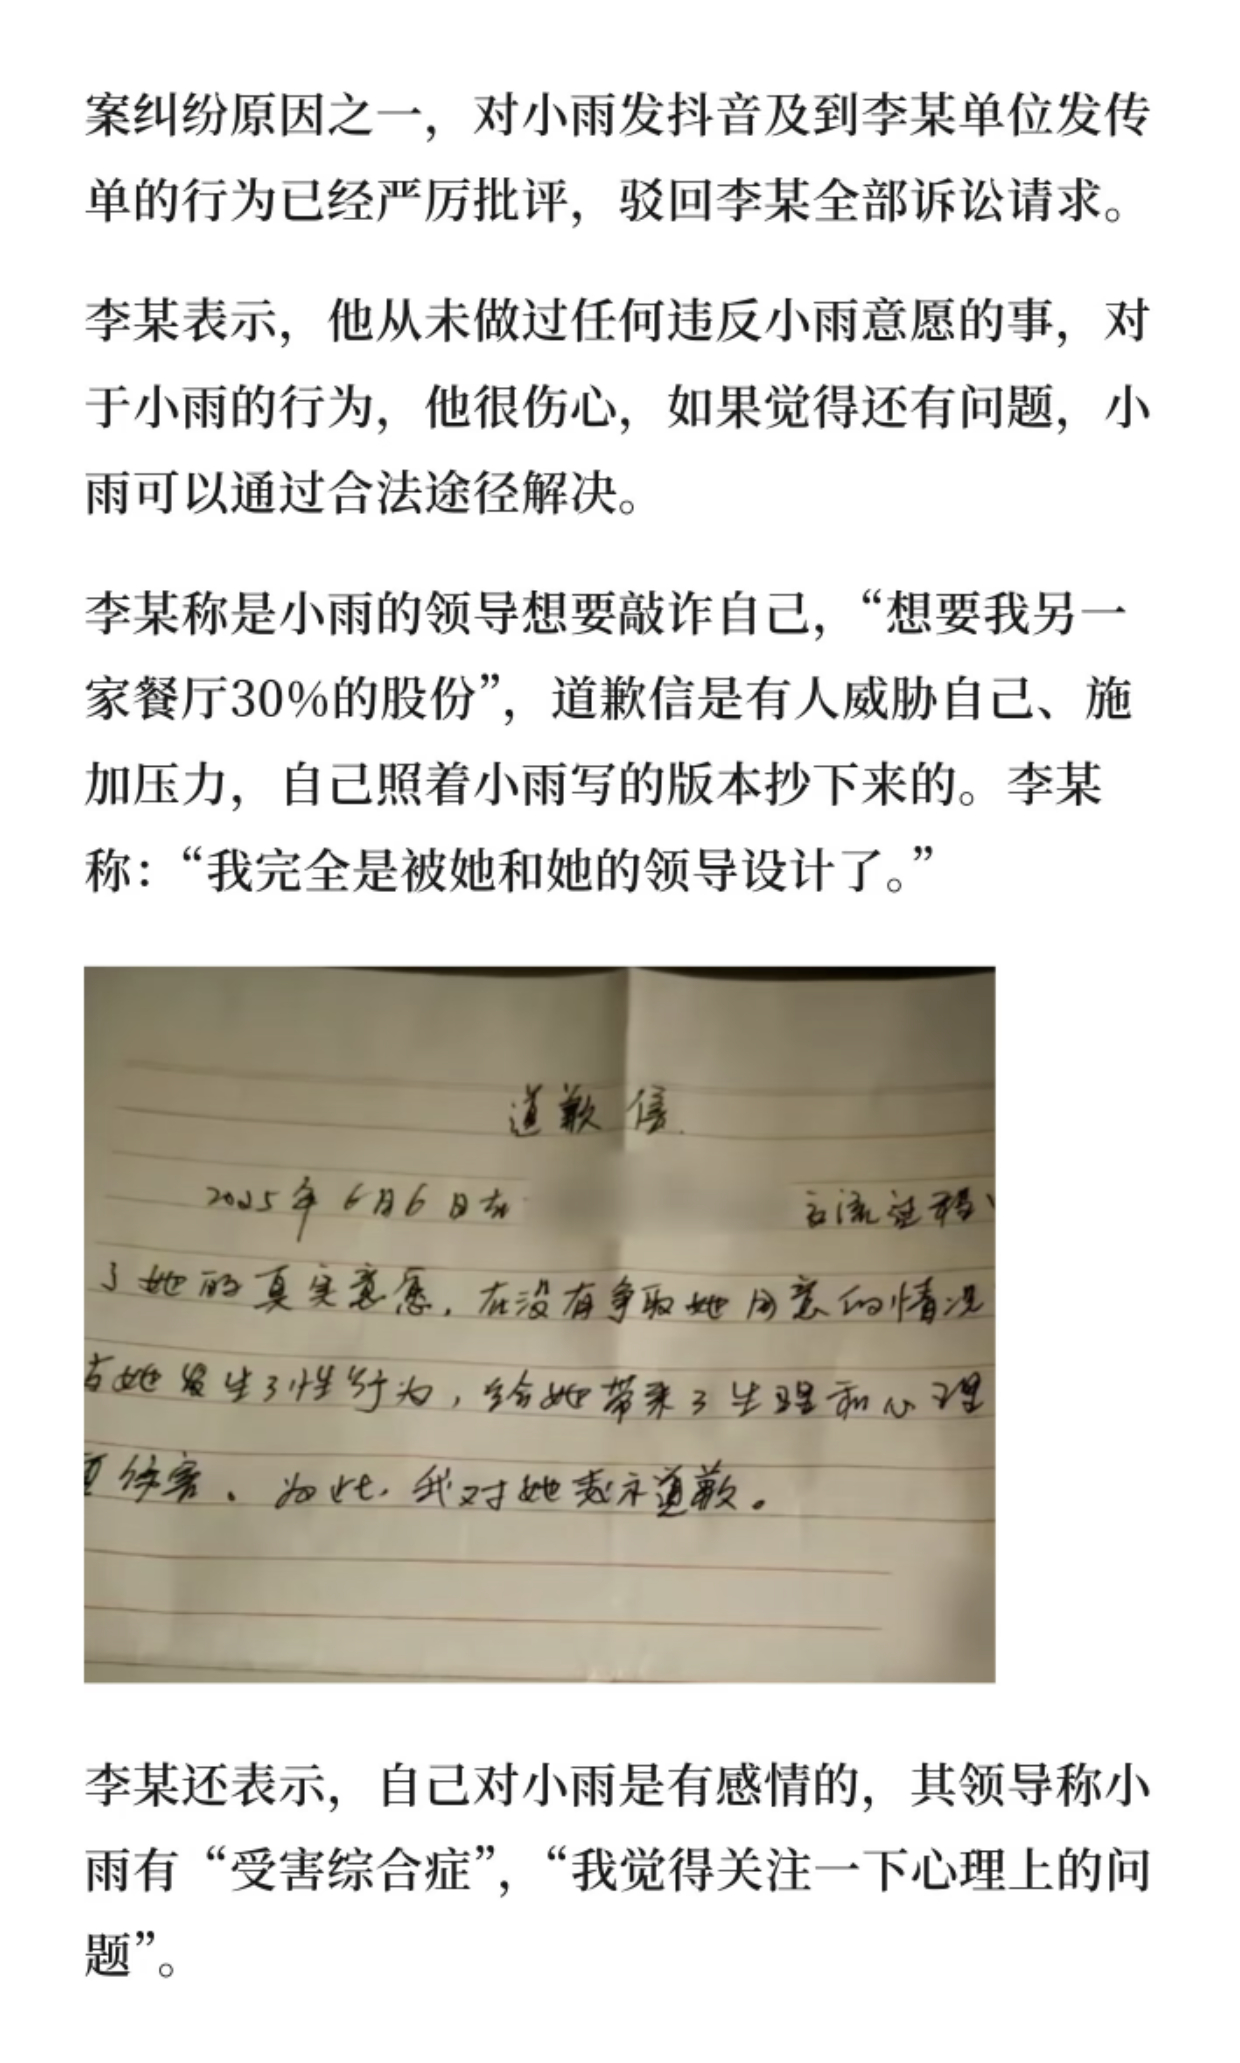 案纠纷原因之一，对小雨发抖音及到李某单位发传
单的行为已经严厉批评，驳回李某全部诉讼请求。
李某表示，他从未做过任何违反小雨意愿的事，对
于小雨的行为，他很伤心，如果觉得还有问题，小
雨可以通过合法途径解决。
李某称是小雨的领导想要敲诈自己，“想要我另一
家餐厅30%的股份”，道歉信是有人威胁自己、施
加压力，自己照着小雨写的版本抄下来的。李某
称：“我完全是被她和她的领导设计了。”
道歉信
2025年6月6日在 交流过程
了她的真实意愿，在没有争取她同意的情况
与她发生了性行为，给她带来了生理和心理
伤害。为此，我对她表示道歉。
李某还表示，自己对小雨是有感情的，其领导称小
雨有“受害综合症”，“我觉得关注一下心理上的问
题”。